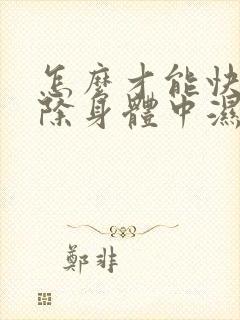 怎麼才能快
除身體中濕
鄭非